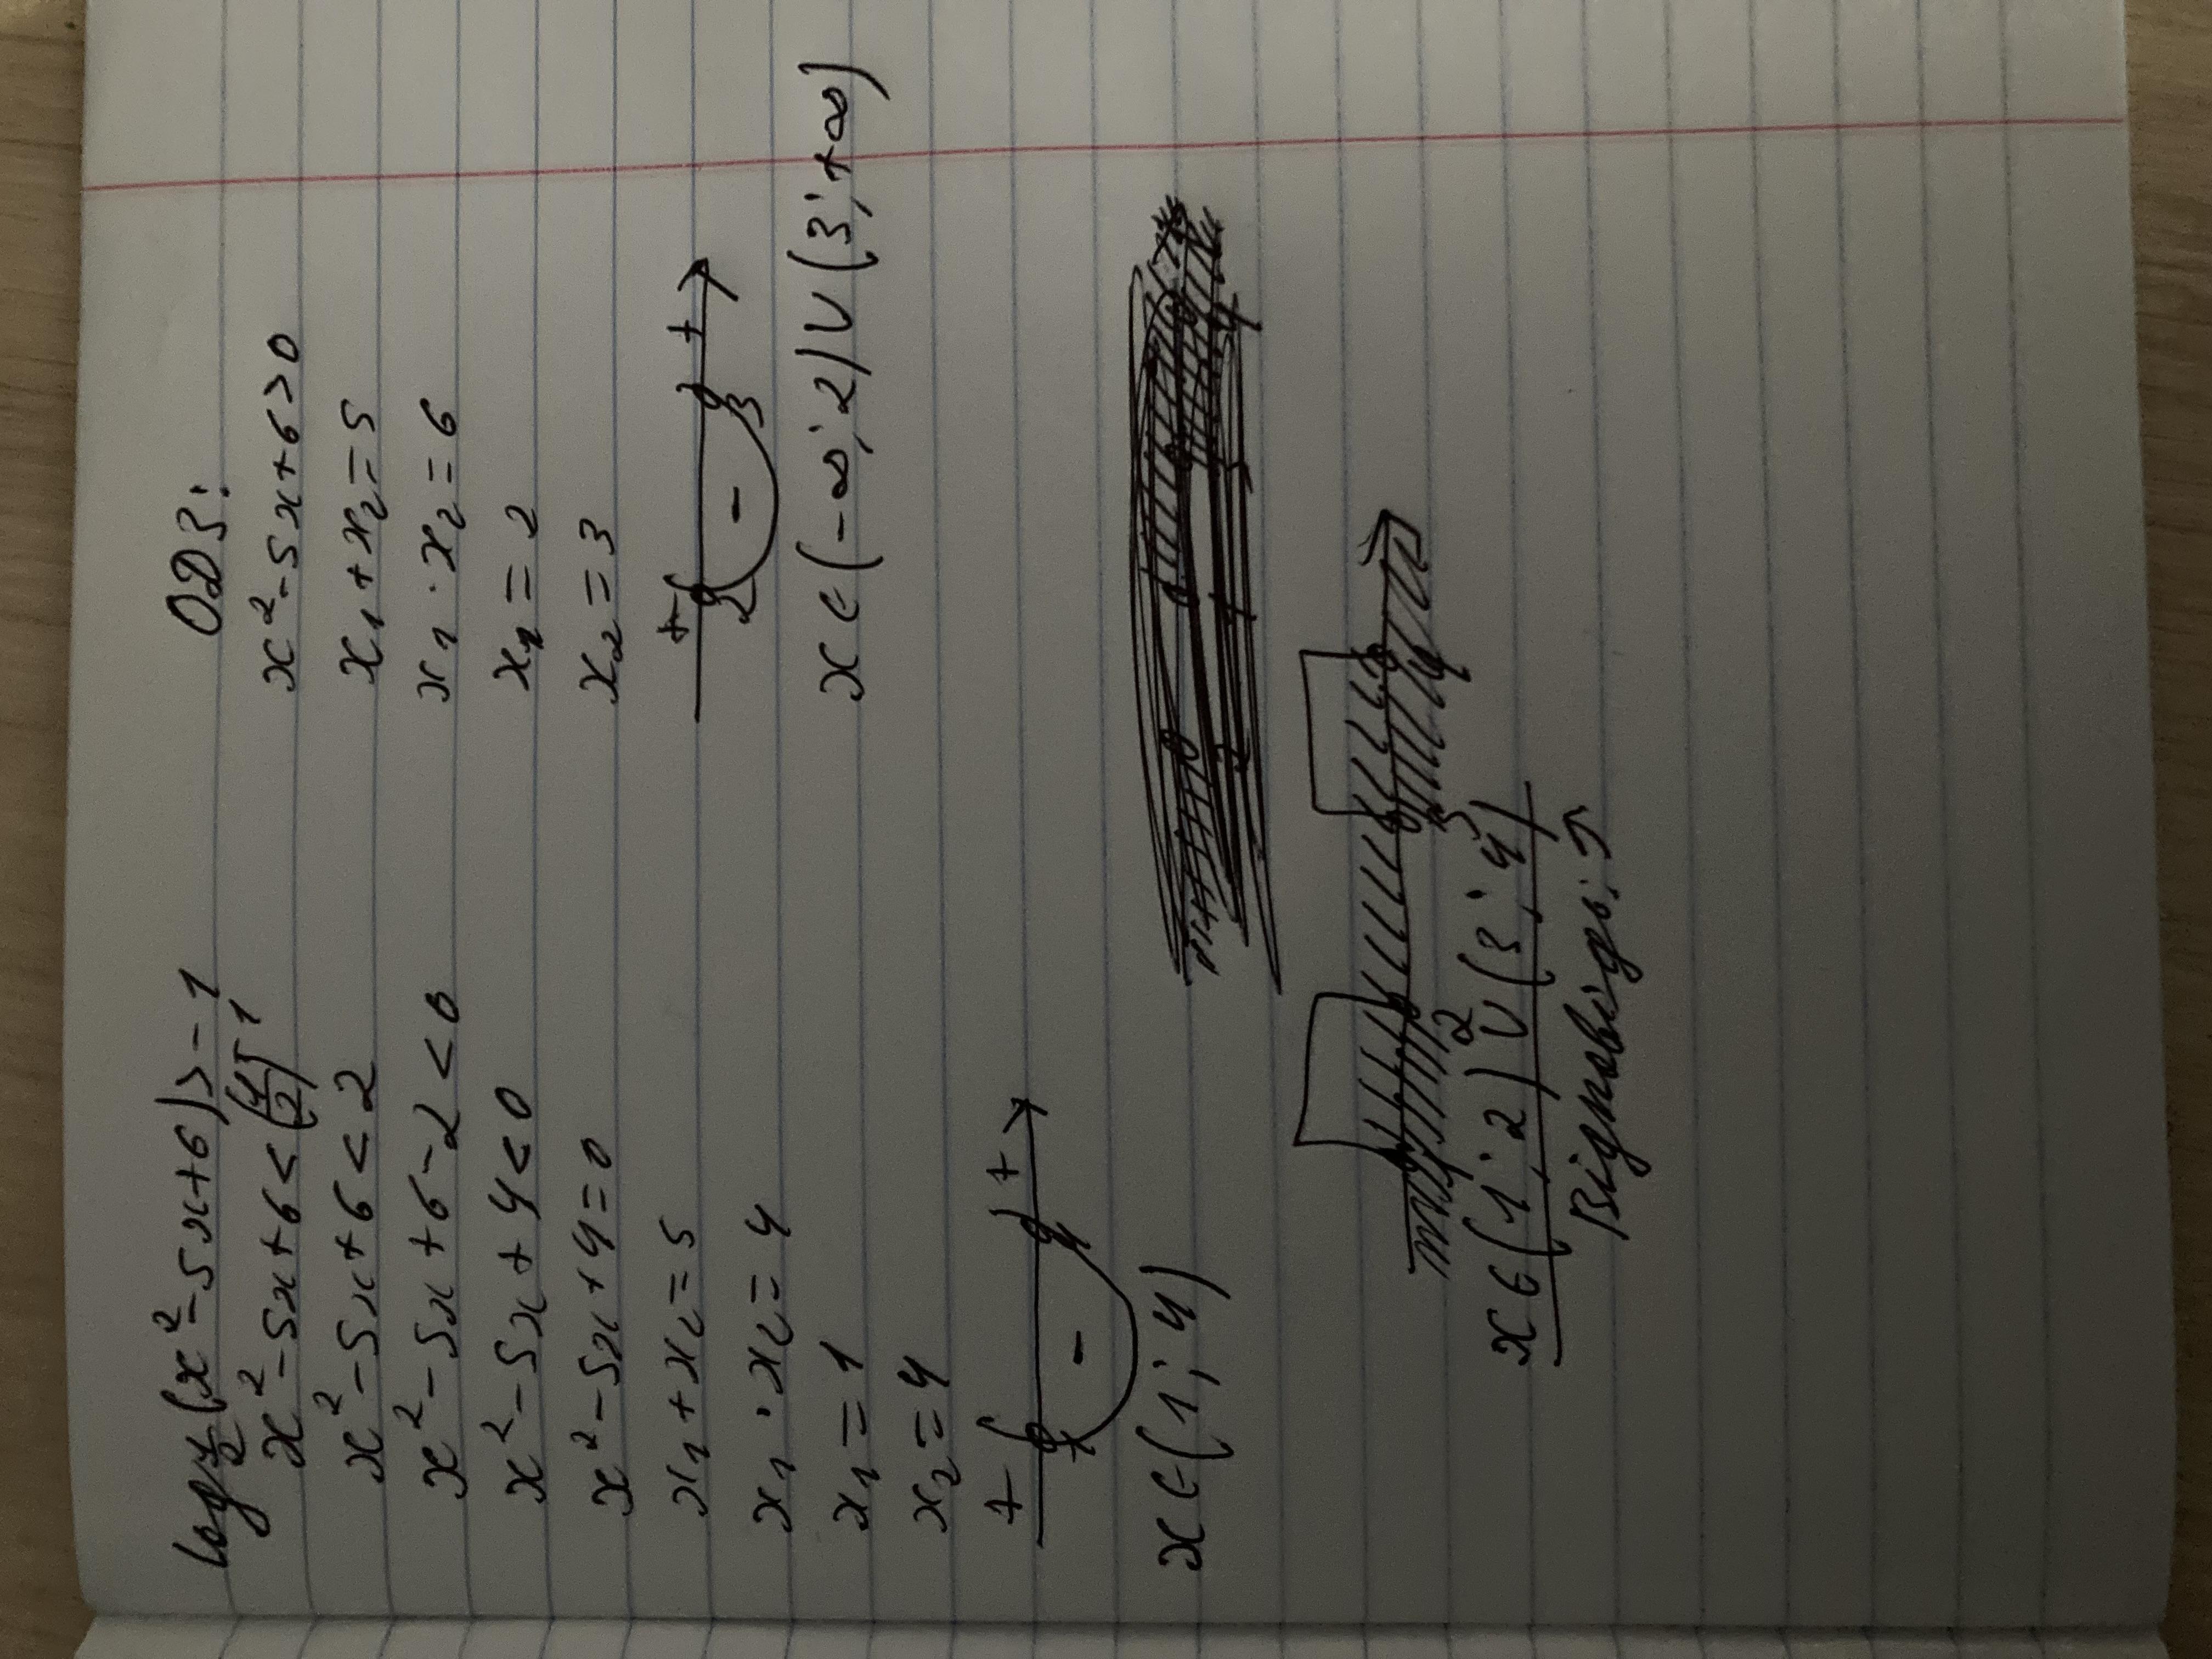 log½(x²-5x+6)>-1
x²-5x+6<(½)⁻¹
x²-5x+6<2
x²-5x+6-2<0
x²-5x+4<0
x²-5x+4=0
x₁+x₂=5
x₁·x₂=4
x₁=1
x₂=4
+ - +
1 4
x∈(1;4)
ОДЗ:
x²-5x+6>0
x₁+x₂=5
x₁·x₂=6
x₁=2
x₂=3
+ - +
2 3
x∈(-∞;2)∪(3;+∞)
2 3 4
x∈(1;2)∪(3;4)
Відповідь:↗